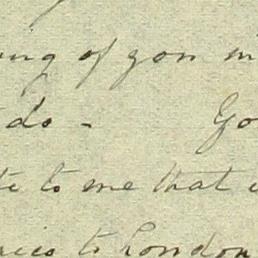 ing of you
do - Go
te to me that
to London